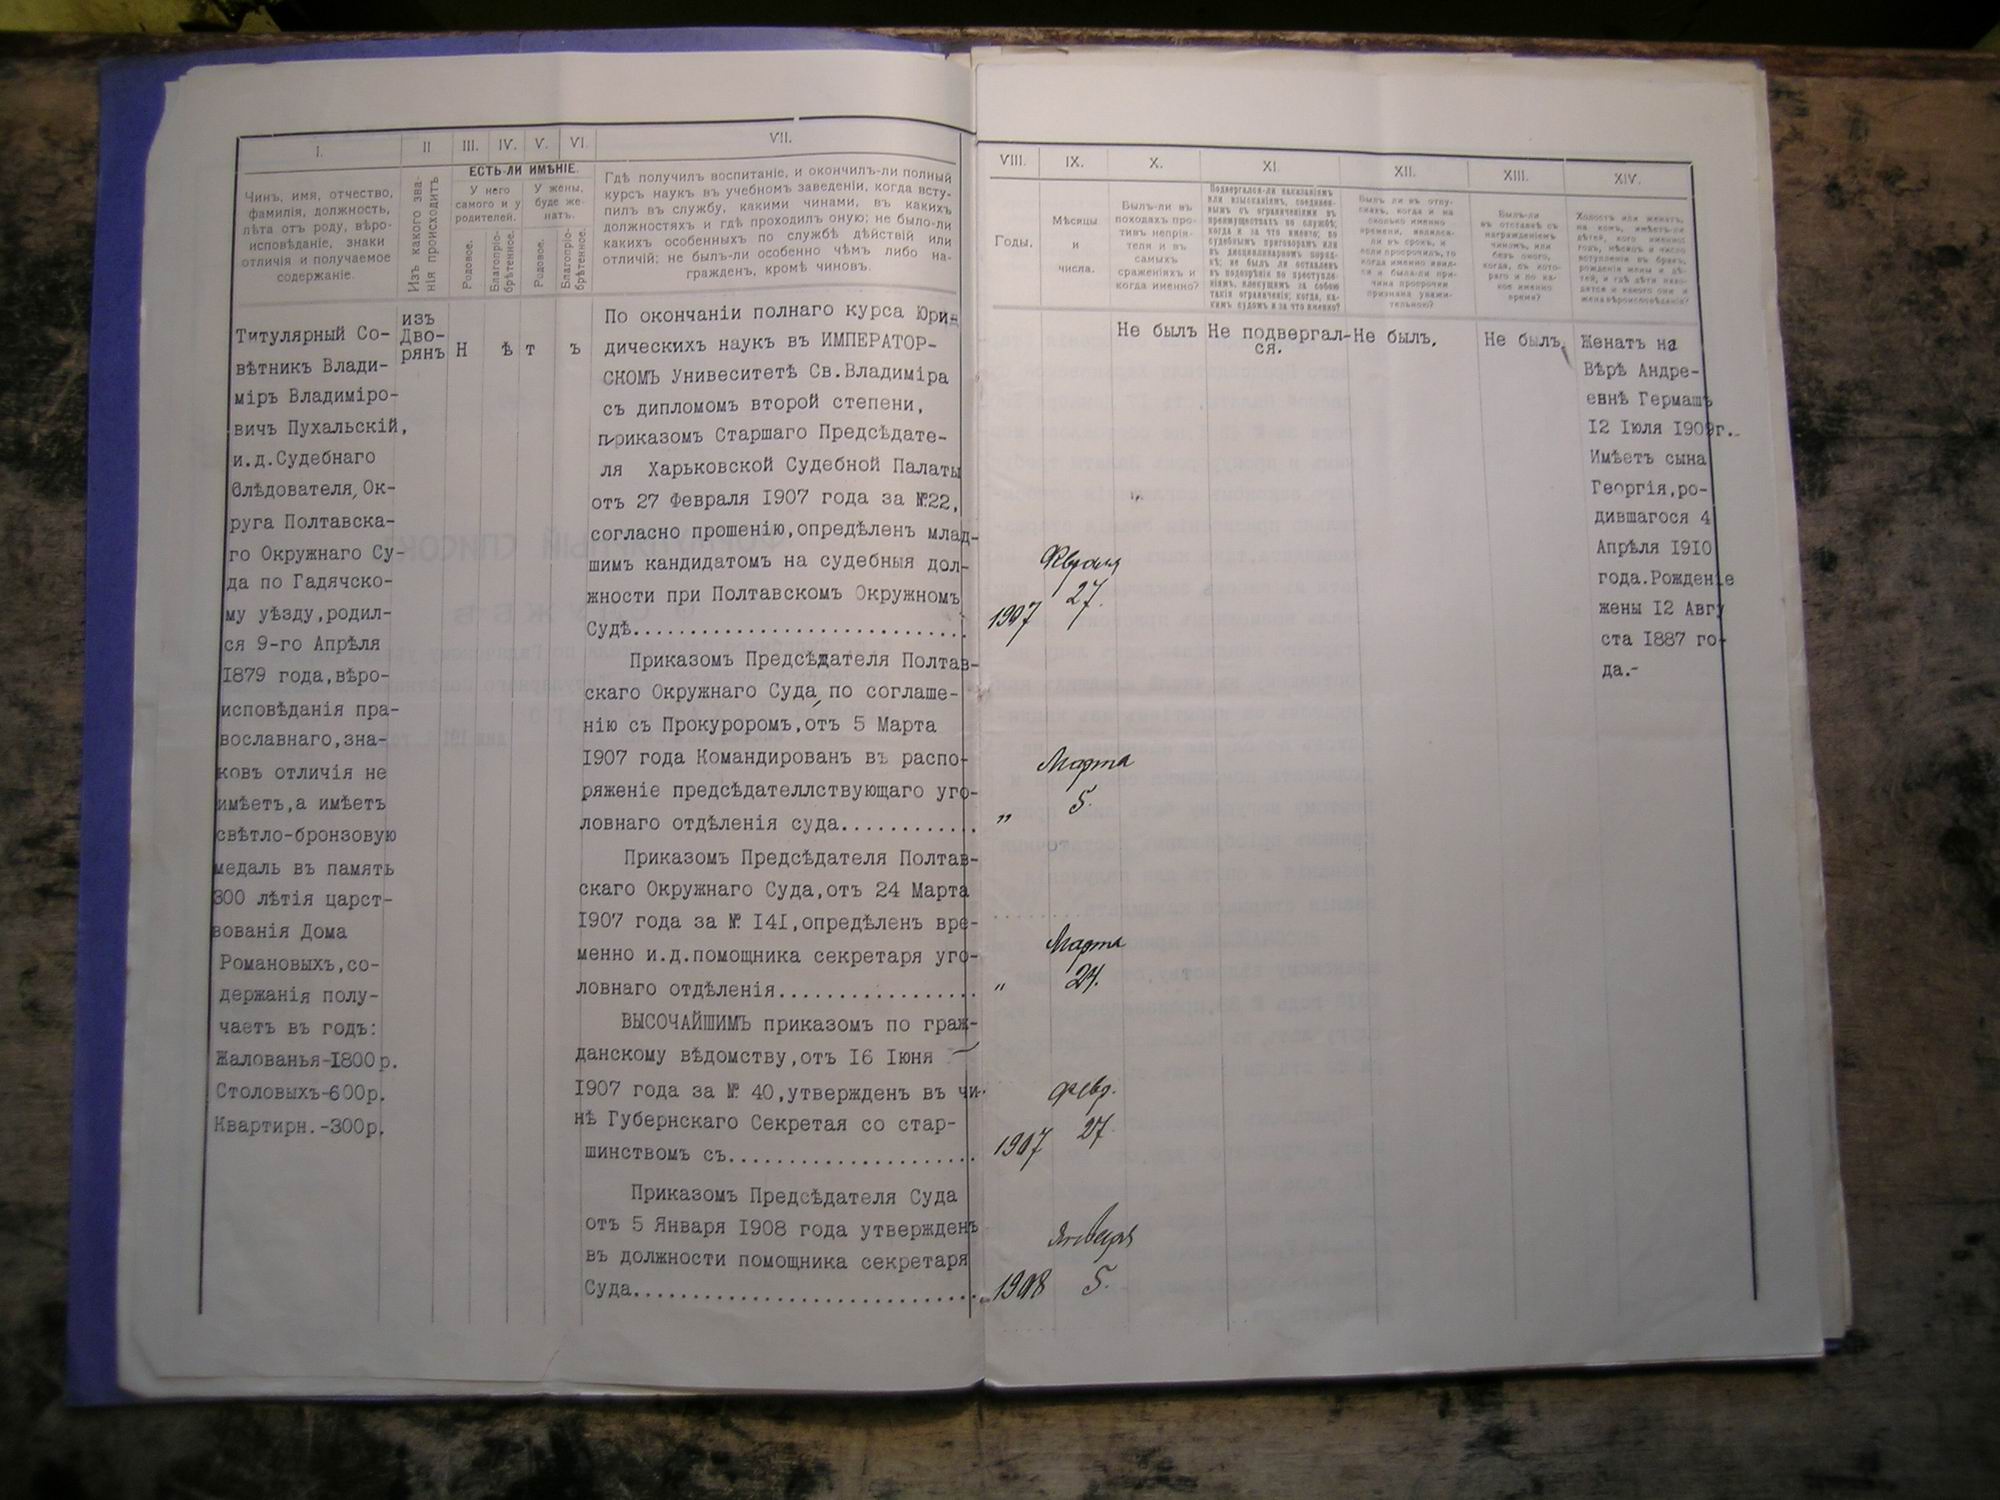 I.
II
III.
IV.
V.
VI.
VII.
Чинъ, имя, отчество,
фамилія, должность,
лѣта отъ роду, вѣро-
исповѣданіе, знаки
отличія и получаемое
содержаніе.
Изъ какого зва-
нія происходитъ
ЕСТЬ-ЛИ ИМѢНІЕ.
У него
самого и у
родителей.
У жены,
буде же-
натъ.
Родовое.
Благопріо-
брѣтенное.
Родовое.
Благопріо-
брѣтенное.
Гдѣ получилъ воспитаніе, и окончилъ-ли полный
курсъ наукъ въ учебномъ заведеніи, когда всту-
пилъ въ службу, какими чинами, въ какихъ
должностяхъ и гдѣ проходилъ оную; не было-ли
какихъ особенныхъ по службѣ дѣйствій или
отличій; не былъ-ли особенно чѣмъ либо на-
гражденъ, кромѣ чиновъ.
Титулярный Со-
вѣтникъ Влади-
міръ Владиміро-
вичъ Пухальскій,
и.д.Судебнаго
Слѣдователя, Ок-
руга Полтавска-
го Окружнаго Су-
да по Гадячско-
му уѣзду,родил-
ся 9-го Апрѣля
1879 года,вѣро-
исповѣданія пра-
вославнаго,зна-
ковъ отличія не
имѣетъ,а имѣетъ
свѣтло-бронзовую
медаль въ память
300 лѣтія царст-
вованія Дома
Романовыхъ,со-
держанія полу-
чаетъ въ годъ:
Жалованья-1800р.
Столовыхъ-600р.
Квартирн.-300р.
изъ
Дво-
рянъ
Н ѣ т ъ
По окончаніи полнаго курса Юри-
дическихъ наукъ въ ИМПЕРАТОР-
СКОМЪ Унивеситетѣ Св.Владиміра
съ дипломомъ второй степени,
приказомъ Старшаго Предсѣдате-
ля Харьковской Судебной Палаты
отъ 27 Февраля 1907 года за №22,
согласно прошенію,опредѣленъ млад-
шимъ кандидатомъ на судебныя дол-
жности при Полтавскомъ Окружномъ
Судѣ............................
Приказомъ Предсѣдателя Полтав-
скаго Окружнаго Суда, по соглаше-
нію съ Прокуроромъ,отъ 5 Марта
1907 года Командированъ въ распо-
ряженіе предсѣдателлствующаго уго-
ловнаго отдѣленія суда............
Приказомъ Предсѣдателя Полтав-
скаго Окружнаго Суда,отъ 24 Марта
1907 года за № 141,опредѣленъ вре-
менно и.д.помощника секретаря уго-
ловнаго отдѣленія.................
ВЫСОЧАЙШИМЪ приказомъ по граж-
данскому вѣдомству,отъ 16 Іюня
1907 года за № 40,утвержденъ въ чи-
нѣ Губернскаго Секретая со стар-
шинствомъ съ.....................
Приказомъ Предсѣдателя Суда
отъ 5 Января 1908 года утвержденъ
въ должности помощника секретаря
Суда.............................
VIII.
IX.
X.
XI.
XII.
XIII.
XIV.
Годы.
Мѣсяцы
и
числа.
Былъ-ли въ
походахъ про-
тивъ непрія-
теля и въ
самыхъ
сраженіяхъ и
когда именно?
Подвергался-ли наказаніямъ
или взысканіямъ, соединен-
нымъ съ ограниченіями въ
преимуществахъ по службѣ;
когда и за что именно; по
судебнымъ приговорамъ или
въ дисциплинарномъ поряд-
кѣ; не былъ ли оставленъ
въ подозрѣніи по преступле-
ніямъ, влекущимъ за собою
такія ограниченія; когда, ка-
кимъ судомъ и за что именно?
Былъ ли въ отпу-
скахъ, когда и на
сколько именно
времени, являлся-
ли въ срокъ, и
если просрочилъ, то
когда именно явил-
ся и была-ли при-
чина просрочки
признана уважи-
тельною?
Былъ-ли
въ отставкѣ съ
награжденіемъ
чиномъ, или
безъ онаго,
когда, съ кото-
раго и по ка-
кое именно
время?
Холостъ или женатъ,
на комъ, имѣетъ-ли
дѣтей, кого именно;
годъ, мѣсяцъ и число
вступленія въ бракъ,
рожденія жены и дѣ-
тей, и гдѣ дѣти нахо-
дятся и какого они и
жена вѣроисповѣданія?
Не былъ
Не подвергал-
ся.
Не былъ,
Не былъ,
Женатъ на
Вѣрѣ Андре-
евнѣ Гермашъ
12 Іюля 1909г.-
Имѣетъ сына
Георгія,ро-
дившагося 4
Апрѣля 1910
года.Рожденіе
жены 12 Авгу
ста 1887 го-
да.-
1907 Февраля
27.
„ Марта
5.
„ Марта
24.
1907 февр.
27.
1908 Января
5.